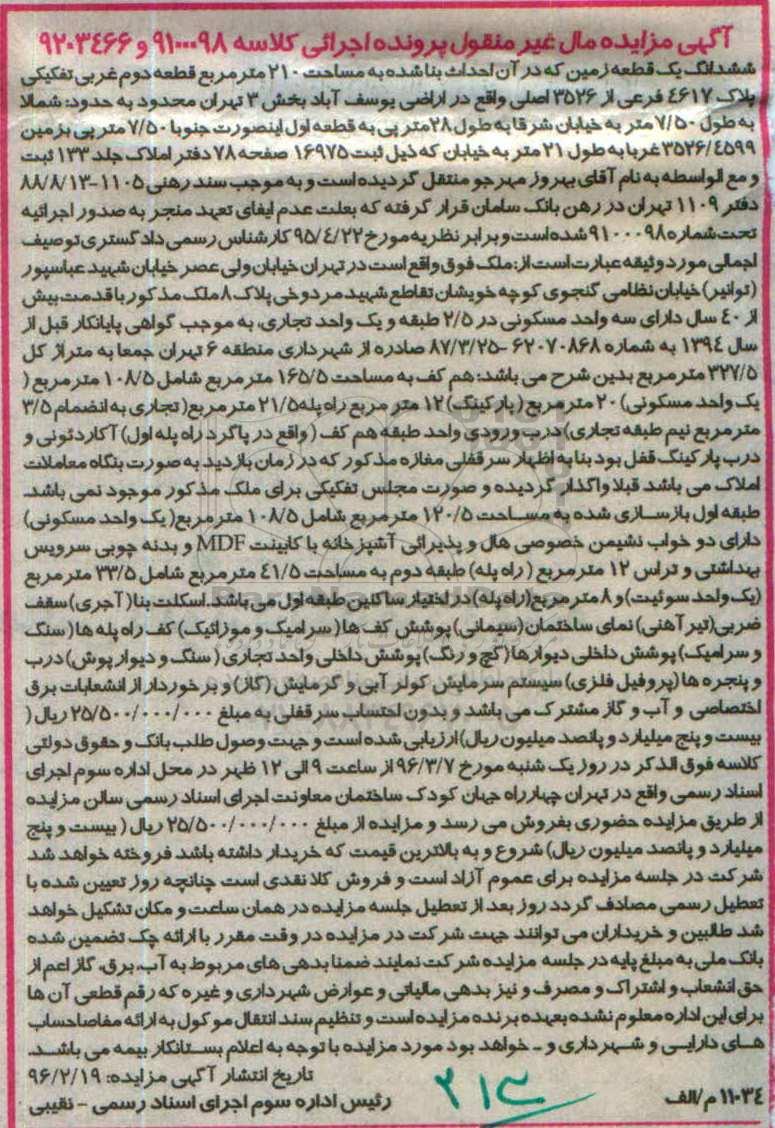 آگهی مزایده مال غیر منقول پرونده اجرائی کلاسه ۹۱۰۰۰۹۸ و ۹۲۰۳٤۶۶
ششدانگ یک قطعه زمین که در آن احداث بنا شده به مساحت ۲۱۰ مترمربع قطعه دوم غربی تفکیکی
پلاک ٤۶۱۷ فرعی از ۳۵۲۶ اصلی واقع در اراضی یوسف آباد بخش ۳ تهران محدود به حدود: شمالا
به طول ۷/۵۰ متر به خیابان شرقا به طول ۲۸متر پی به قطعه اول اینصورت جنوبا ۷/۵۰ متر پی بزمین
۳۵۲۶/٤۵۹۹ غربا به طول ۲۱ متر به خیابان که ذیل ثبت ۱۶۹۷۵ صفحه ۷۸ دفتر املاک جلد ۱۳۳ ثبت
و مع الواسطه به نام آقای بهروز مهرجو منتقل گردیده است و به موجب سند رهنی ۱۱۰۵-۸۸/۸/۱۳
دفتر ۱۱۰۹ تهران در رهن بانک سامان قرار گرفته که بعلت عدم ایفای تعهد منجر به صدور اجرائیه
تحت شماره ۹۱۰۰۰۹۸ شده است و برابر نظریه مورخ ۹۵/٤/۲۲ کارشناس رسمی دادگستری توصیف
اجمالی مورد وثیقه عبارت است از: ملک فوق واقع است در تهران خیابان ولی عصر خیابان شهید عباسپور
(توانیر) خیابان نظامی گنجوی کوچه خویشان تقاطع شهید مردوخی پلاک ۸ ملک مذکور با قدمت بیش
از ٤۰ سال دارای سه واحد مسکونی در ۲/۵ طبقه و یک واحد تجاری، به موجب گواهی پایانکار قبل از
سال ۱۳۹٤ به شماره ۶۲۰۷۰۸۶۸ -۸۷/۳/۲۵ صادره از شهرداری منطقه ۶ تهران جمعا به متراژ کل
۳۲۷/۵ مترمربع بدین شرح می باشد: هم کف به مساحت ۱۶۵/۵ مترمربع شامل ۱۰۸/۵ مترمربع (
یک واحد مسکونی) ۲۰ مترمربع (پارکینگ) ۱۲ متر مربع راه پله ۲۱/۵ مترمربع( تجاری به انضمام ۳/۵
مترمربع نیم طبقه تجاری) درب ورودی واحد طبقه هم کف (واقع در پاگرد راه پله اول) آکاردئونی و
درب پارکینگ قفل بود بنا به اظهار سرقفلی مغازه مذکور که در زمان بازدید به صورت بنگاه معاملات
املاک می باشد قبلا واگذار گردیده و صورت مجلس تفکیکی برای ملک مذکور موجود نمی باشد.
طبقه اول بازسازی شده به مساحت ۱۲۰/۵ مترمربع شامل ۱۰۸/۵ مترمربع( یک واحد مسکونی)
دارای دو خواب نشیمن خصوصی هال و پذیرائی آشپزخانه با کابینت MDF و بدنه چوبی سرویس
بهداشتی و تراس ۱۲ مترمربع ( راه پله) طبقه دوم به مساحت ٤۱/۵ مترمربع شامل ۳۳/۵ مترمربع
(یک واحد سوئیت) و ۸ مترمربع(راه پله) در اختیار ساکنین طبقه اول می باشد. اسکلت بنا( آجری) سقف
ضربی(تیر آهنی) نمای ساختمان (سیمانی) پوشش کف ها ( سرامیک و موزائیک) کف راه پله ها ( سنگ
و سرامیک) پوشش داخلی دیوارها (گچ و رنگ) پوشش داخلی واحد تجاری ( سنگ و دیوارپوش) درب
و پنجره ها (پروفیل فلزی) سیستم سرمایش کولر آبی و گرمایش (گاز) و برخوردار از انشعابات برق
اختصاصی و آب و گاز مشترک می باشد و بدون احتساب سرقفلی به مبلغ ۲۵/۵۰۰/۰۰۰/۰۰۰ ریال (
بیست و پنج میلیارد و پانصد میلیون ریال) ارزیابی شده است و جهت وصول طلب بانک و حقوق دولتی
کلاسه فوق الذکر در روز یک شنبه مورخ ۹۶/۳/۷ از ساعت ۹ الی ۱۲ ظهر در محل اداره سوم اجرای
اسناد رسمی واقع در تهران چهارراه جهان کودک ساختمان معاونت اجرای اسناد رسمی سالن مزایده
از طریق مزایده حضوری بفروش می رسد و مزایده از مبلغ ۲۵/۵۰۰/۰۰۰/۰۰۰ ریال ( بیست و پنج
میلیارد و پانصد میلیون ریال) شروع و به بالاترین قیمت که خریدار داشته باشد فروخته خواهد شد
شرکت در جلسه مزایده برای عموم آزاد است و فروش کلا نقدی است چنانچه روز تعیین شده با
تعطیل رسمی مصادف گردد روز بعد از تعطیل جلسه مزایده در همان ساعت و مکان تشکیل خواهد
شد طالبین و خریداران می توانند جهت شرکت در مزایده در وقت مقرر با ارائه چک تضمین شده
بانک ملی به مبلغ پایه در جلسه مزایده شرکت نمایند ضمنا بدهی های مربوط به آب، برق، گاز اعم از
حق انشعاب و اشتراک و مصرف و نیز بدهی مالیاتی و عوارض شهرداری و غیره که رقم قطعی آن ها
برای این اداره معلوم نشده بعهده برنده مزایده است و تنظیم سند انتقال موکول به ارائه مفاصاحساب
های دارایی و شهرداری و ... خواهد بود مورد مزایده با توجه به اعلام بستانکار بیمه می باشد.
تاریخ انتشار آگهی مزایده: ۹۶/۲/۱۹
۱۱۰۳٤ م/الف
رئیس اداره سوم اجرای اسناد رسمی - نقیبی